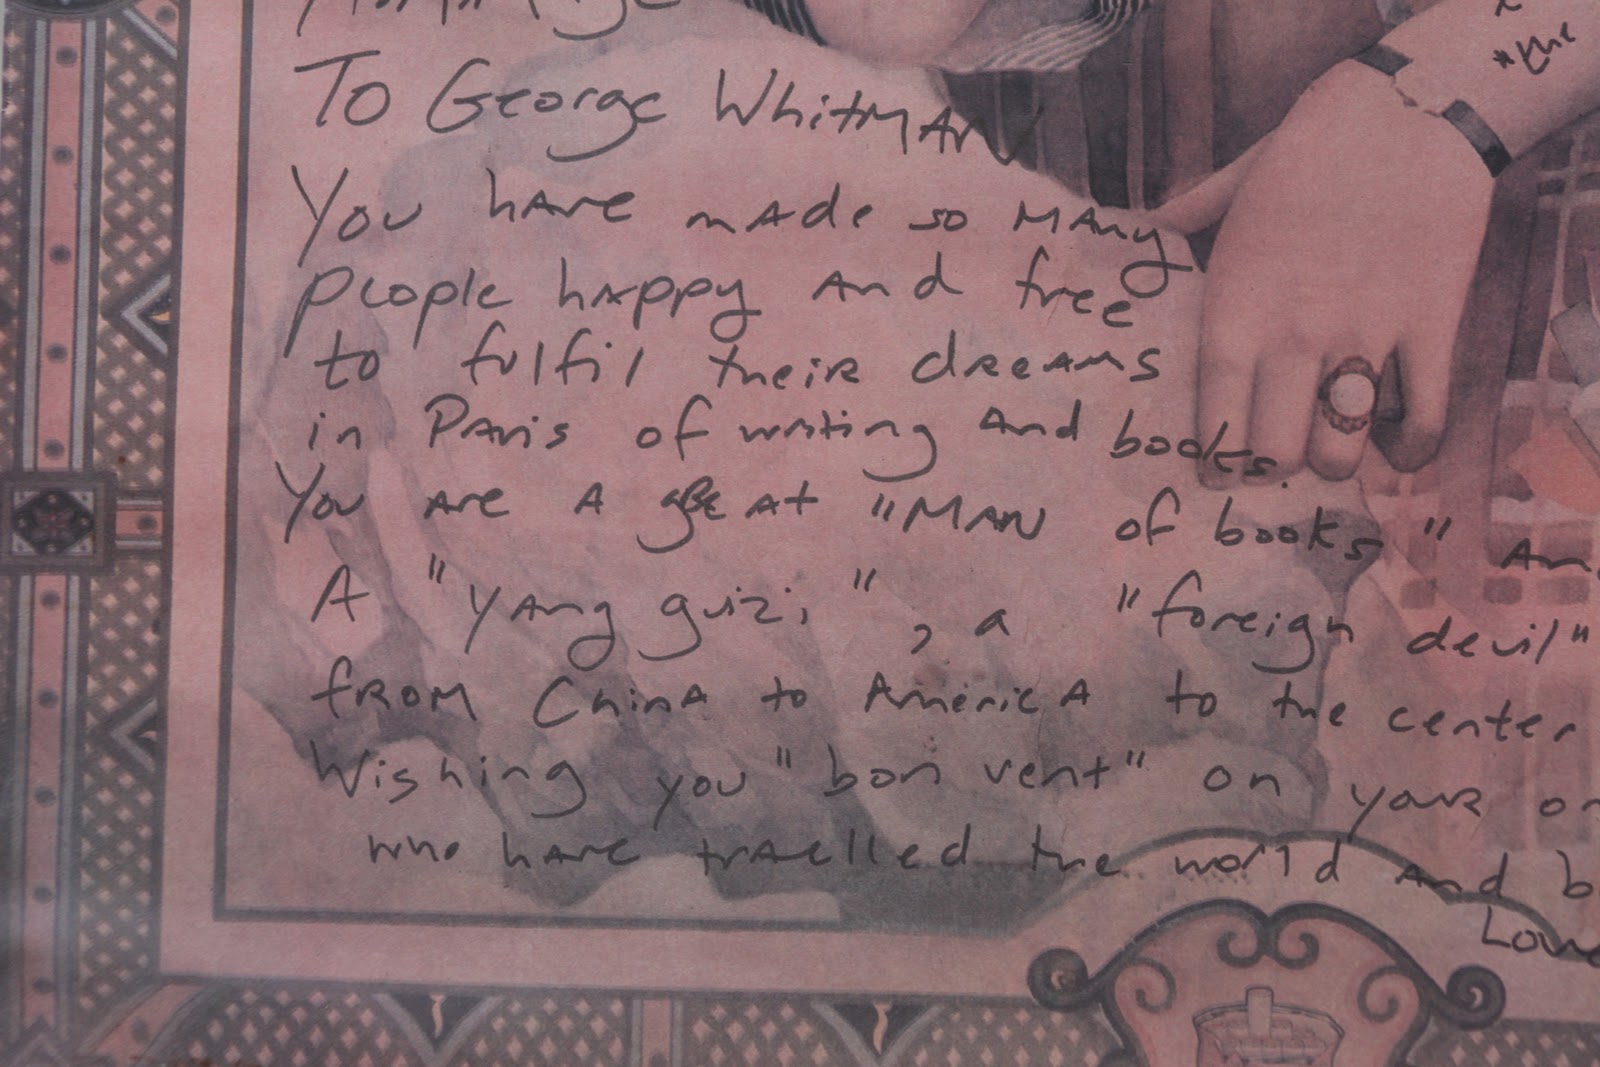 To George Whitman
You have made so many
people happy and free
to fulfil their dreams
in Paris of writing and books.
You are a great "Man of books" an
A "yang guizi", a "foreign devil"
from China to America to the center
Wishing you "bon vent" on your
who have traelled the world and b